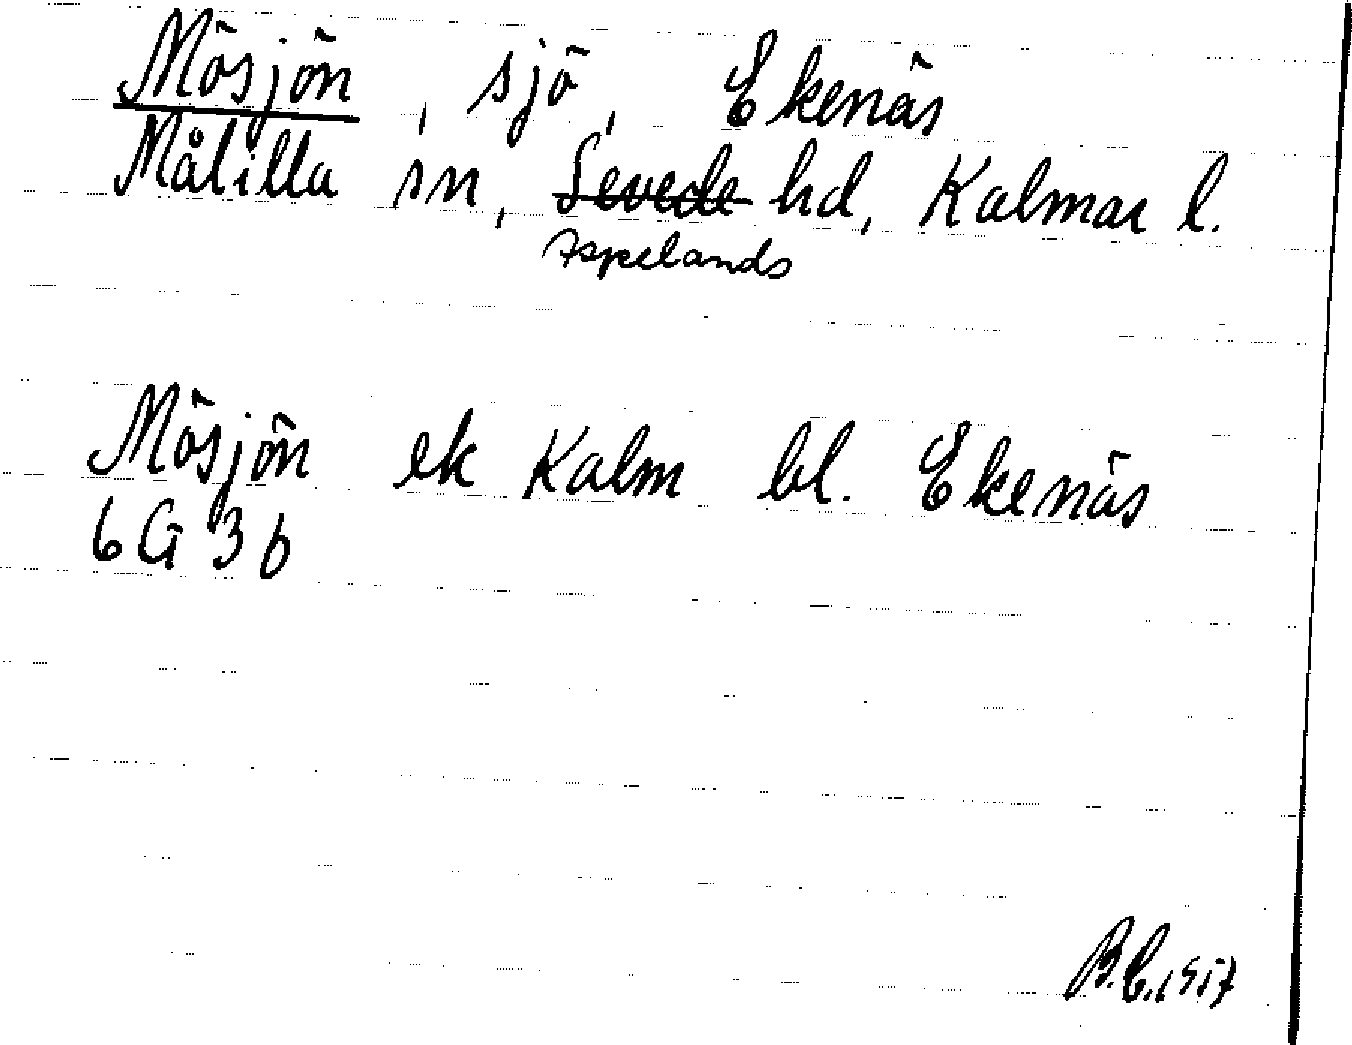 Mösjön, sjö, Ekenäs
Målilla sn, Sevede hd, Kalmar l.
Aspelands
Mösjön ek Kalm bl. Ekenäs
6G 3b